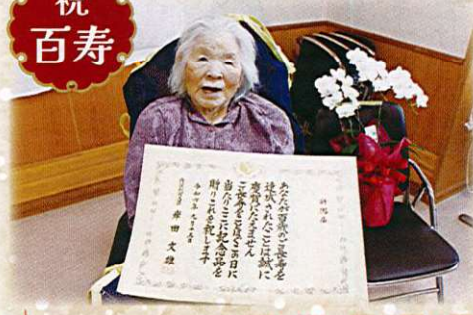 祝
百寿
あなたが百歳のご長寿を
達成されたことは誠に
慶賀にたえません
ご長寿をことほぐこの日に
当たりここに記念品を
贈りこれを祝します
令和四年九月十五日
内閣総理大臣 岸田文雄